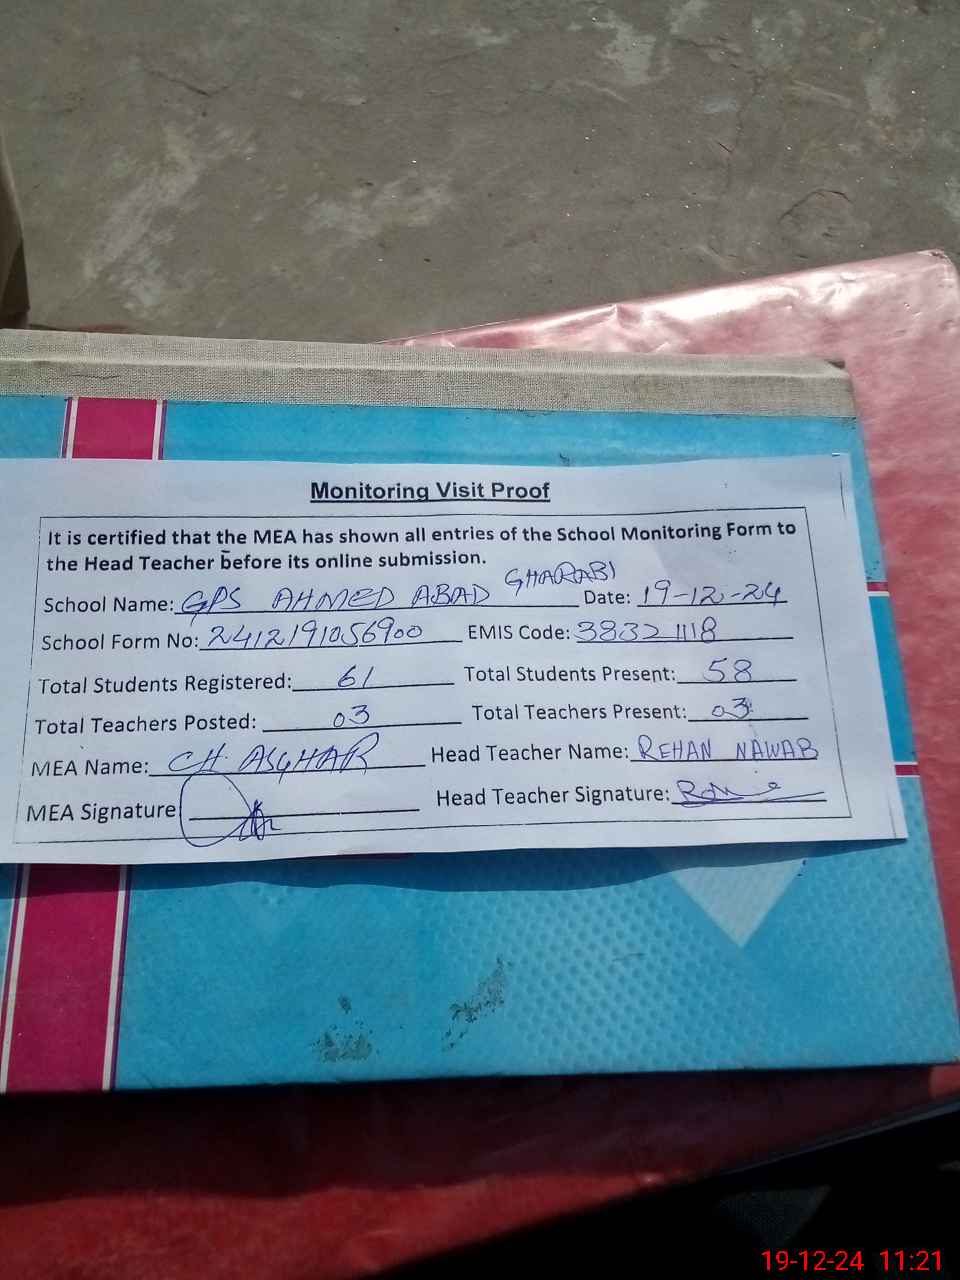 Monitoring Visit Proof
It is certified that the MEA has shown all entries of the School Monitoring Form to
the Head Teacher before its online submission.
School Name: GPS AHMED ABAD GHARABI Date: 19-12-24
School Form No: 2412191056900 EMIS Code: 38321118
Total Students Registered: 61 Total Students Present: 58
Total Teachers Posted: 03 Total Teachers Present: 03
MEA Name: CH. ASGHAR Head Teacher Name: REHAN NAWAB
MEA Signature Head Teacher Signature:
19-12-24 11:21